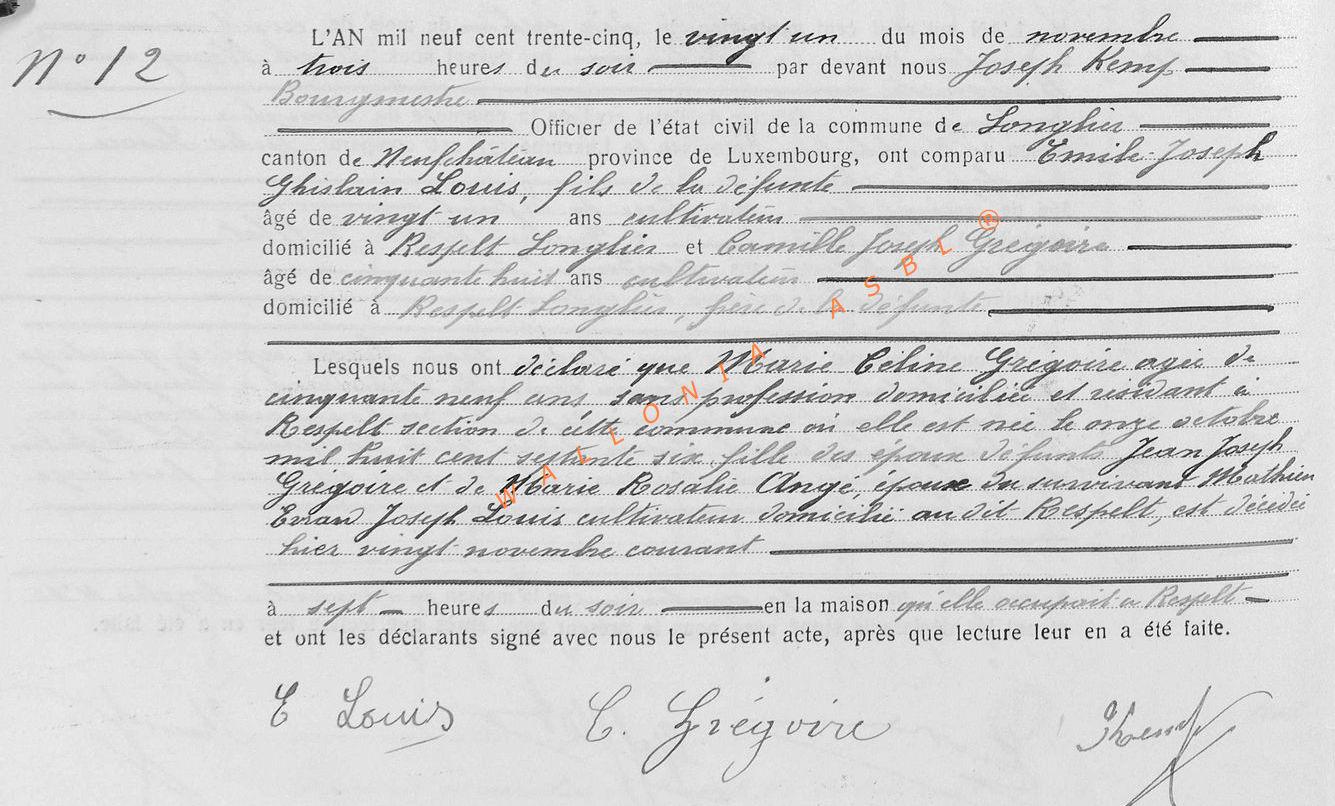 N° 12
L'AN mil neuf cent trente-cinq, le vingt un du mois de novembre
à trois heures du soir par devant nous Joseph Kemp
Bourgmestre
Officier de l'état civil de la commune de Longlier
canton de Neufchâteau province de Luxembourg, ont comparu Emile Joseph
Ghislain Louis, fils de la défunte
âgé de vingt un ans cultivateur
domicilié à Respelt Longlier et Camille Joseph Grégoire
âgé de cinquante huit ans cultivateur
domicilié à Respelt Longlier, frère de la défunte
Lesquels nous ont déclaré que Marie Céline Grégoire agée de
cinquante neuf ans sans profession domiciliée et résidant à
Respelt section de cette commune où elle est née le onze octobre
mil huit cent septante six, fille des époux défunts Jean Joseph
Grégoire et de Marie Rosalie Angé, épouse du survivant Mathieu
Joseph Louis cultivateur domicilié au dit Respelt, est décédée
hier vingt novembre courant
à sept heures du soir en la maison qu'elle occupait à Respelt
et ont les déclarants signé avec nous le présent acte, après que lecture leur en a été faite.
E Louis C. Grégoire JKemp
WALLONIA ASBL ®